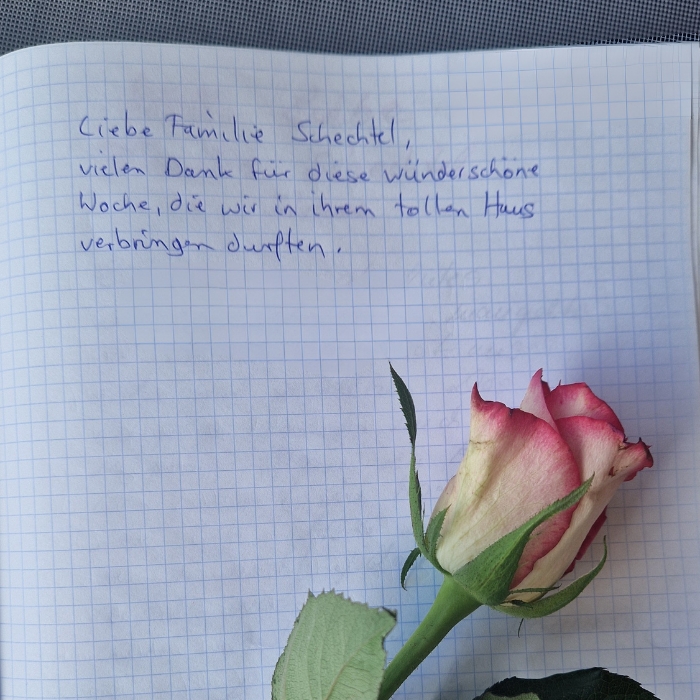 Liebe Familie Schechtel,
vielen Dank für diese wünderschöne
Woche, die wir in ihrem tollen Haus
verbringen durften.